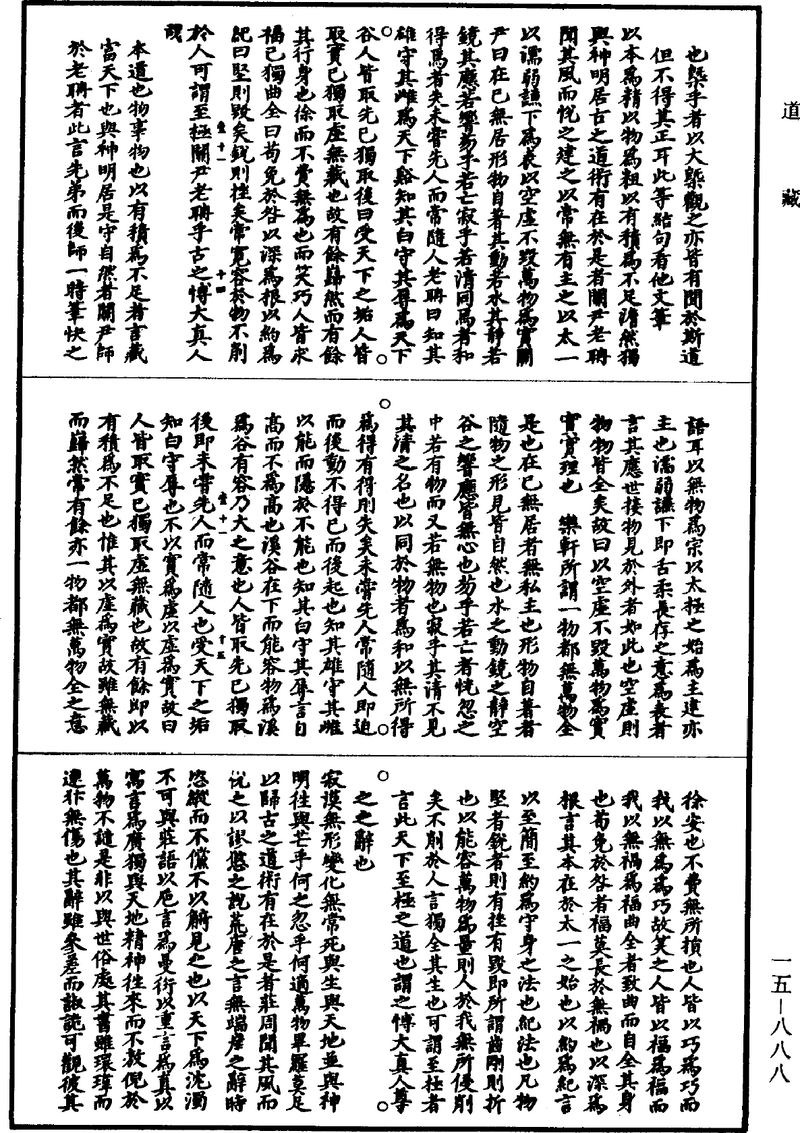 道藏
也槩乎者以大槩觀之亦皆有聞於斯道
但不得其正耳此等結句看他文筆
以本為精以物為粗以有積為不足澹然獨
與神明居古之道術有在於是者關尹老聃
聞其風而悅之建之以常無有主之以太一
以濡弱謙下為表以空虛不毀萬物為實關
尹曰在己無居形物自著其動若水其靜若
鏡其應若響芴乎若亡寂乎若清同焉者和
得焉者失未嘗先人而常隨人老聃曰知其
雄守其雌為天下谿知其白守其辱為天下
谷人皆取先己獨取後曰受天下之垢人皆
取實己獨取虛無藏也故有餘巋然而有餘
其行身也徐而不費無為也而笑巧人皆求
福己獨曲全曰苟免於咎以深為根以約為
紀曰堅則毀矣銳則挫矣常寬容於物不削
於人可謂至極關尹老聃乎古之博大真人
哉
本道也物事物也以有積為不足者言藏
富天下也與神明居是守自然者關尹師
於老聃者此言先弟而後師一時筆快之
語耳以無物為宗以太極之始為主建亦
主也濡弱謙下即舌柔長存之意為表者
言其應世接物見於外者如此也空虛則
物物皆全矣故曰以空虛不毀萬物為實
實實理也 樂軒所謂一物都無萬物全
是也在己無居者無私主也形物自著者
隨物之形見皆自然也水之動鏡之靜空
谷之響應皆無心也芴乎若亡者恍忽之
中若有物而又若無物也寂乎其清不見
其清之名也以同於物者為和以無所得
為得有得則失矣未嘗先人常隨人即迫
而後動不得已而後起也知其雄守其雌
以能而隱於不能也知其白守其辱言自
高而不為高也溪谷在下而能容物為溪
為谷有容乃大之意也人皆取先己獨取
後即未嘗先人而常隨人也受天下之垢
知白守辱也不以實為虛以虛為實故曰
人皆取實己獨取虛無藏也故有餘即以
有積為不足也惟其以虛為實故雖無藏
而巋然常有餘亦一物都無萬物全之意
徐安也不費無所損也人皆以巧為巧而
我以無為為巧故笑之人皆以福為福而
我以無禍為福曲全者致曲而自全其身
也苟免於咎者福莫長於無禍也以深為
根言其本在於太一之始也以約為紀言
以至簡至約為守身之法也紀法也凡物
堅者銳者則有挫有毀即所謂齒剛則折
也以能容萬物為量則人於我無所侵削
矣不削於人言獨全其生也可謂至極者
言此天下至極之道也謂之博大真人尊
之之辭也
寂漠無形變化無常死與生與天地並與神
明往與芒乎何之忽乎何適萬物畢羅莫足
以歸古之道術有在於是者莊周聞其風而
悅之以謬悠之說荒唐之言無端崖之辭時
恣縱而不儻不以觭見之也以天下為沈濁
不可與莊語以卮言為曼衍以重言為真以
寓言為廣獨與天地精神往來而不敖倪於
萬物不譴是非以與世俗處其書雖瓌瑋而
連犿無傷也其辭雖參差而諔詭可觀彼其
一五—八八八